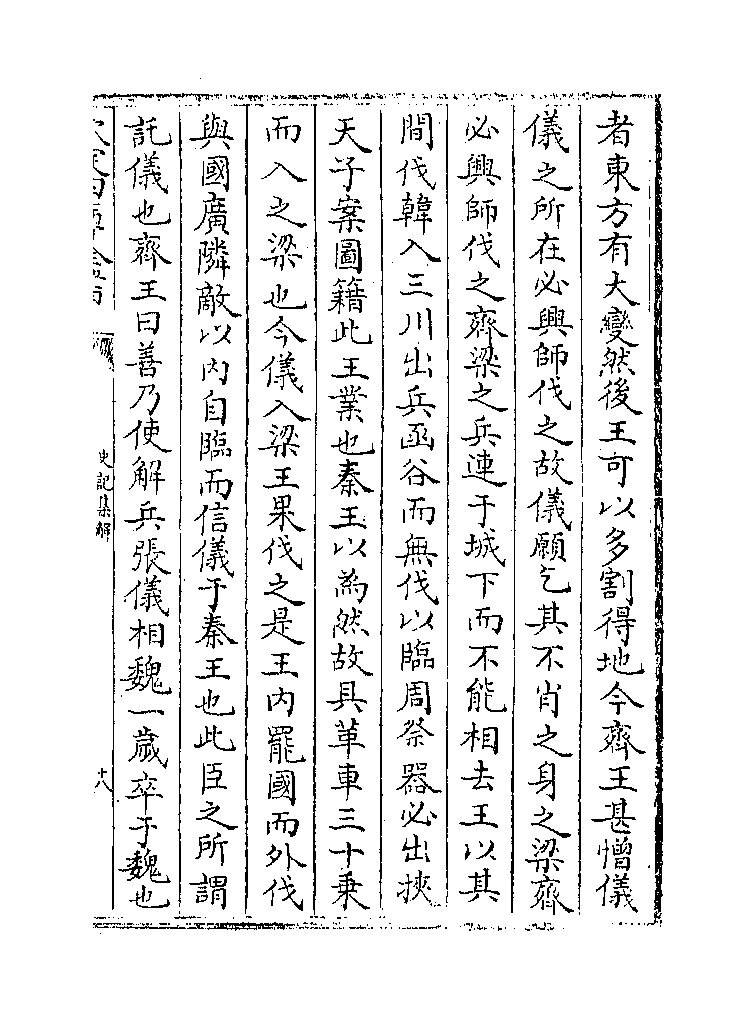 者東方有大變然後王可以多割得地今齊王甚憎儀
儀之所在必興師伐之故儀願乞其不肖之身之梁齊
必興師伐之齊梁之兵連于城下而不能相去王以其
間伐韓入三川出兵函谷而無伐以臨周祭器必出挾
天子案圖籍此王業也秦王以為然故具革車三十乗
而入之梁也今儀入梁王果伐之是王内罷國而外伐
與國廣隣敵以内自臨而信儀于秦王也此臣之所謂
託儀也齊王曰善乃使解兵張儀相魏一歲卒于魏也
史記集解
十八